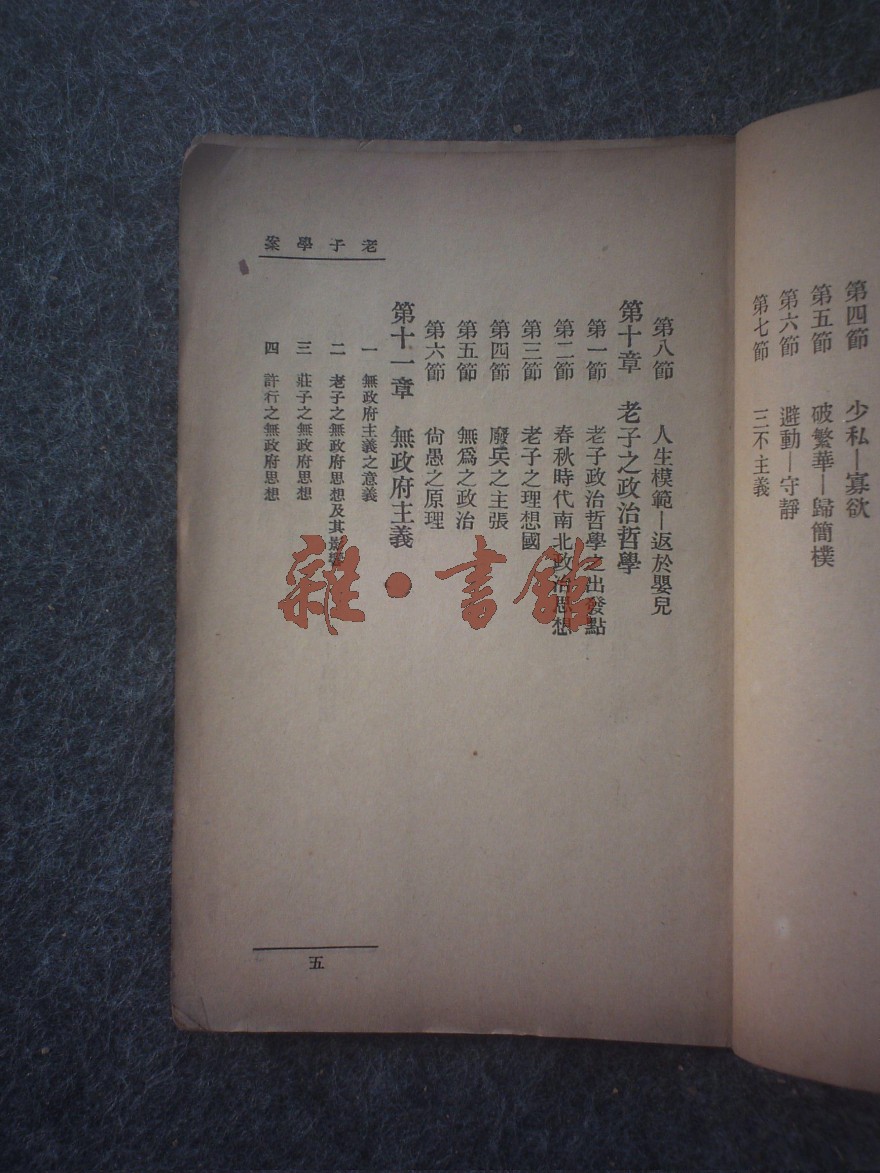 第四節　少私—寡欲
第五節　破繁華—歸簡樸
第六節　避動—守靜
第七節　三不主義
老子學案
第八節　人生模範—返於嬰兒
第十章　老子之政治哲學
第一節　老子政治哲學之出發點
第二節　春秋時代南北政治思想
第三節　老子之理想國
第四節　廢兵之主張
第五節　無爲之政治
第六節　尙愚之原理
第十一章　無政府主義
一　無政府主義之意義
二　老子之無政府思想及其影響
三　莊子之無政府思想
四　許行之無政府思想
五
雜·書館